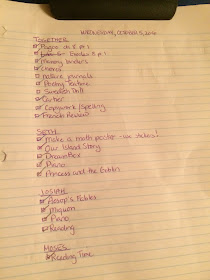 WEDNESDAY, OCTOBER 5, 2016
TOGETHER
Pagoo ch 8 pt 1
Exodus 8 pt 1
Memory binders
Chores
nature journals
Poetry Teatime
Swedish Drill
Cartier
Copywork/Spelling
French Review
SETH
Make a math poster - we takeu!
Our Island Story
DrawnBox
Piano
Princess and the Goblin
JOSIAH
Aesop's Fables
Miquon
Piano
Reading
MOSES
Reading Time